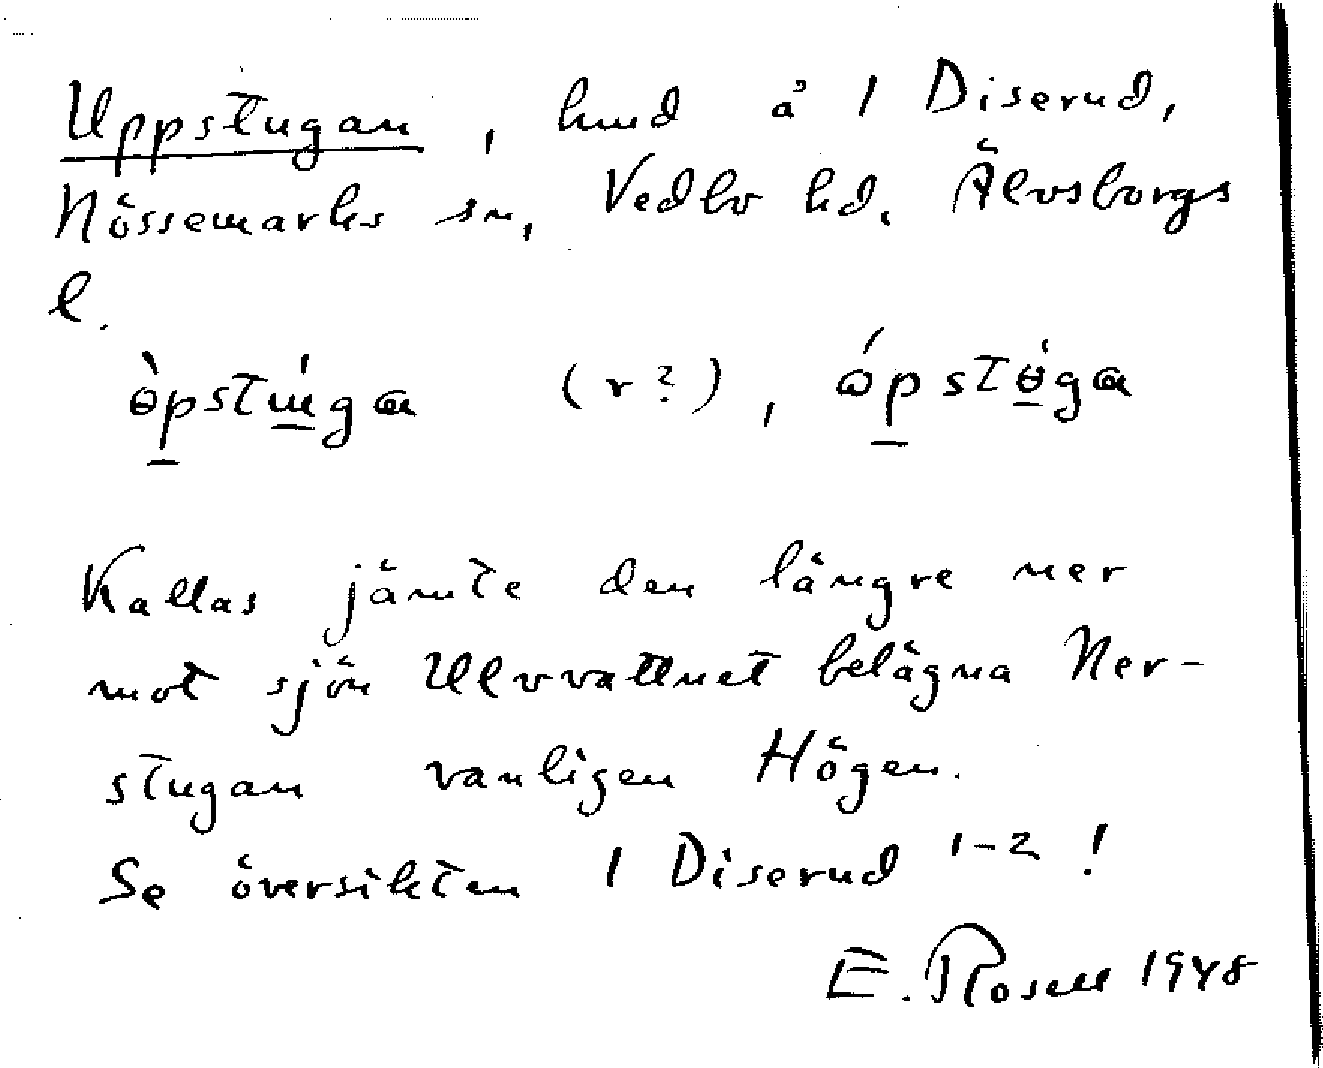 Uppstugan, hmd å 1 Diserud,
Nössemarks sn, Vedbo hd. Älvsborgs
l.
(r?),
Kallas jämte den längre ner
mot sjön Ulvvattnet belägna Ner-
stugan vanligen Högen.
Se översikten 1 Diserud 1-2!
E. Rosell 1948